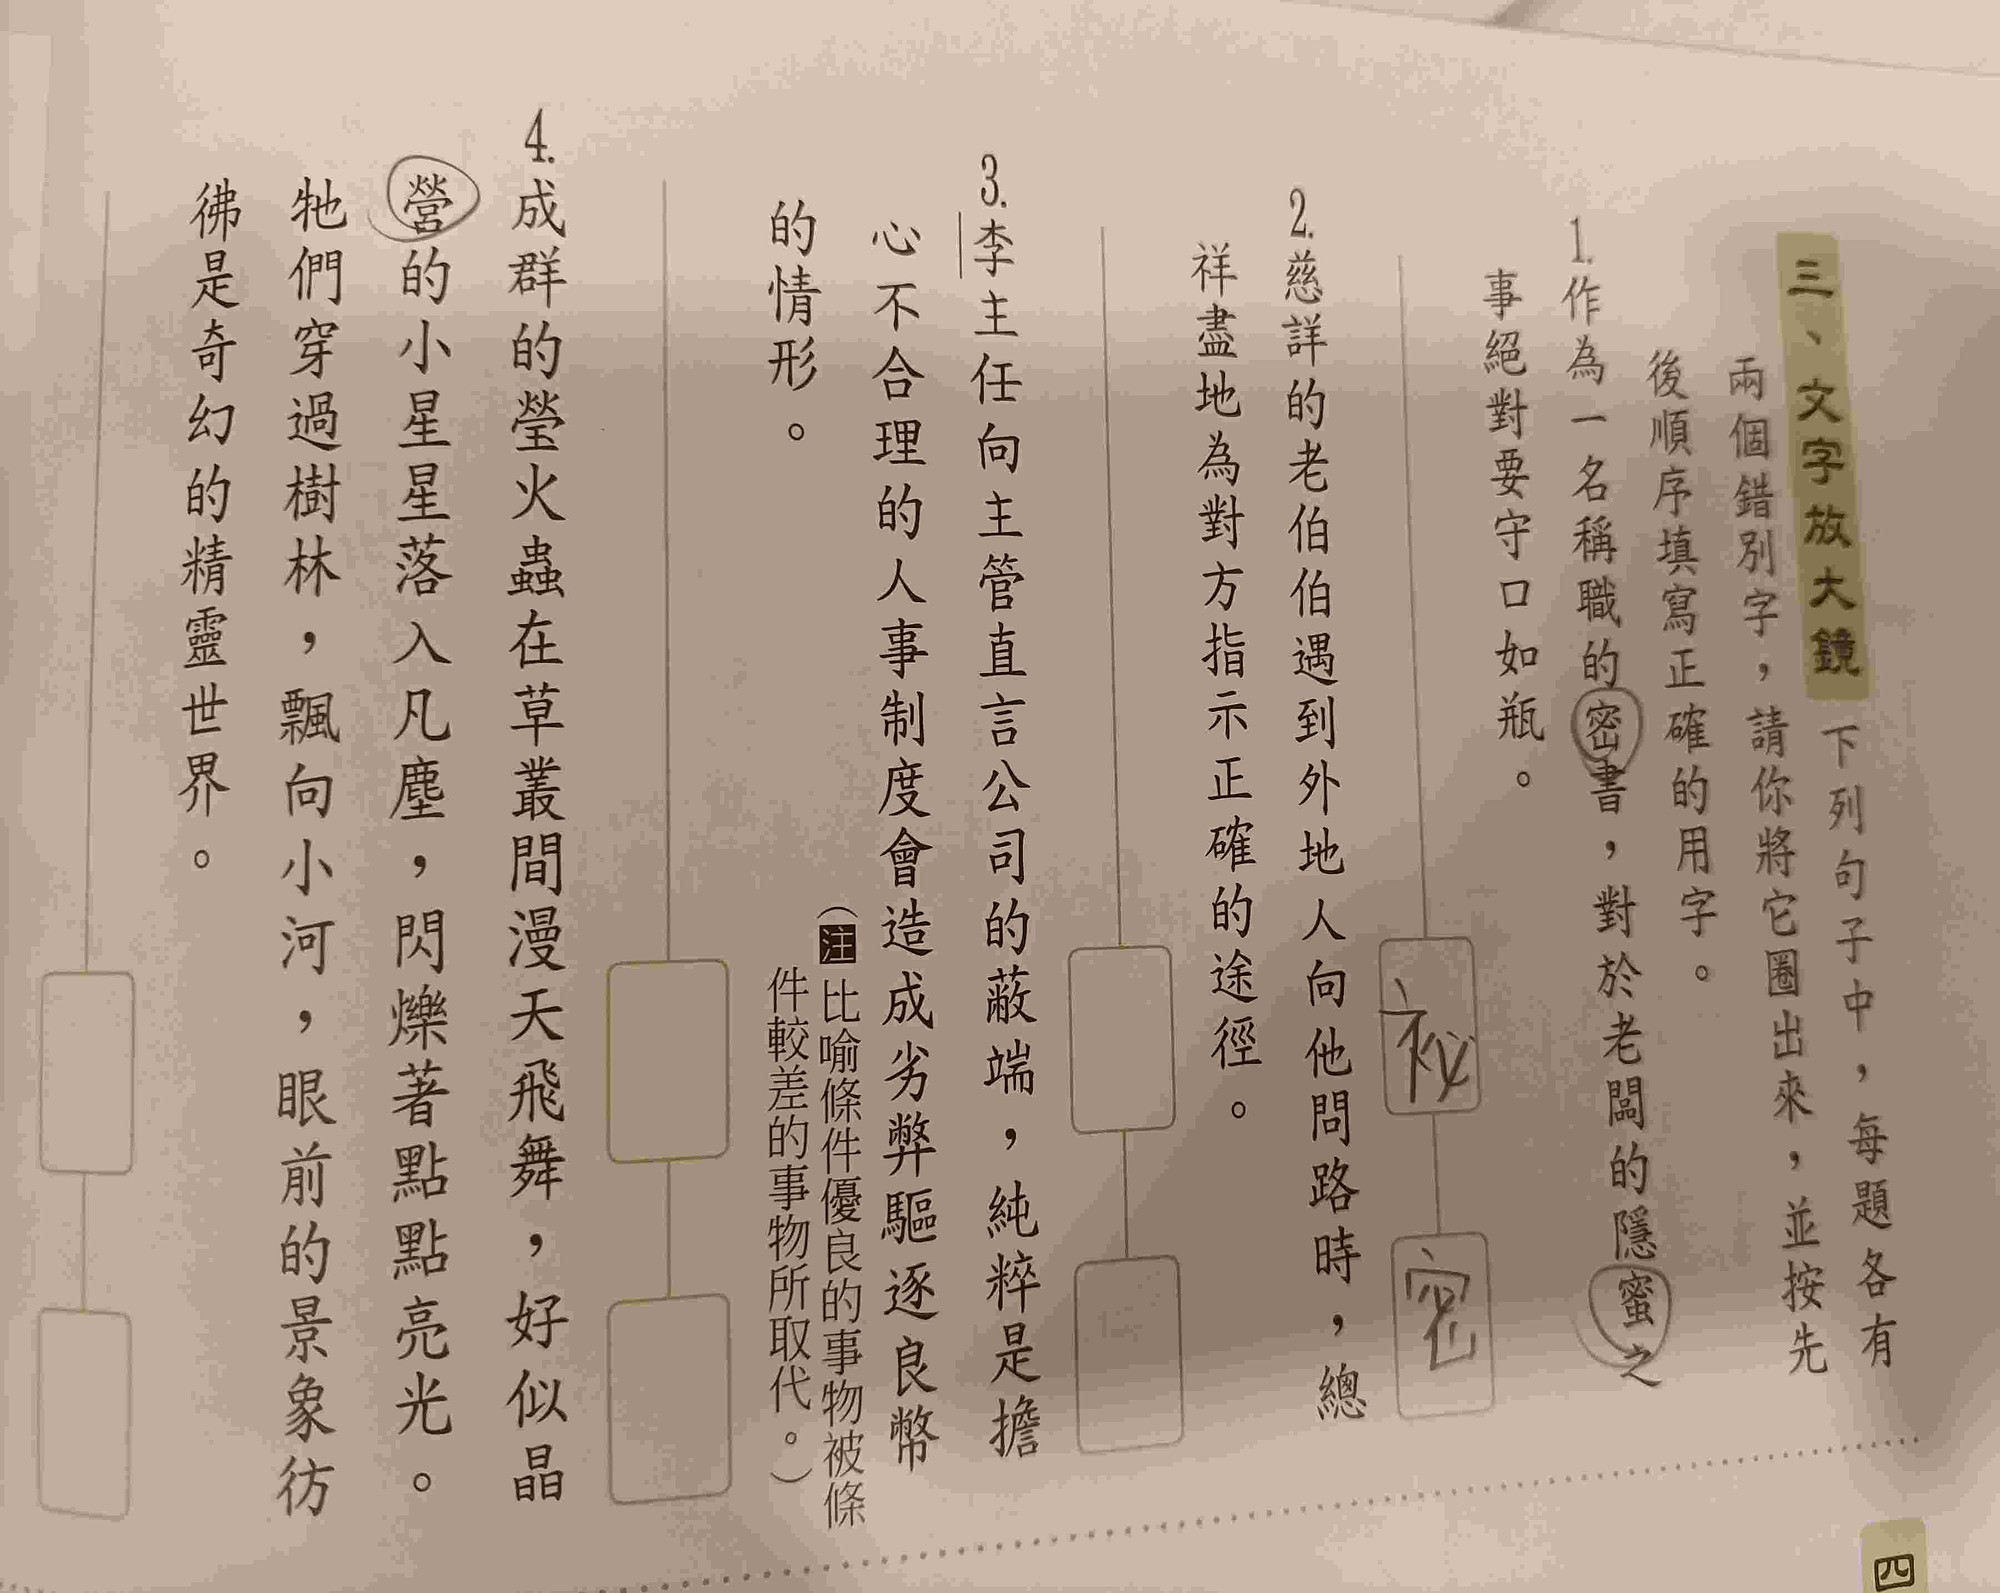 三、文字放大鏡 下列句子中，每題各有
兩個錯別字，請你將它圈出來，並按先
後順序填寫正確的用字。
1.作為一名稱職的密書，對於老闆的隱蜜之
事絕對要守口如瓶。
祕 密
2.慈詳的老伯伯遇到外地人向他問路時，總
祥盡地為對方指示正確的途徑。
3.李主任向主管直言公司的蔽端，純粹是擔
心不合理的人事制度會造成劣弊驅逐良幣
的情形。
（注比喻條件優良的事物被條
件較差的事物所取代。）
4.成群的瑩火蟲在草叢間漫天飛舞，好似晶
營的小星星落入凡塵，閃爍著點點亮光。
牠們穿過樹林，飄向小河，眼前的景象彷
彿是奇幻的精靈世界。
四